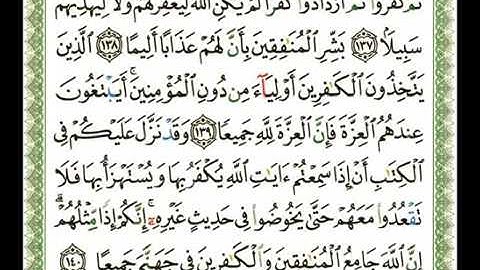 ثُمَّ كَفَرُوا۟ ثُمَّ ٱزْدَادُوا۟ كُفْرًا لَّمْ يَكُنِ ٱللَّهُ لِيَغْفِرَ لَهُمْ وَلَا لِيَهْدِيَهُمْ
سَبِيلًۢا ١٣٧ بَشِّرِ ٱلْمُنَٰفِقِينَ بِأَنَّ لَهُمْ عَذَابًا أَلِيمًا ١٣٨ ٱلَّذِينَ
يَتَّخِذُونَ ٱلْكَٰفِرِينَ أَوْلِيَآءَ مِن دُونِ ٱلْمُؤْمِنِينَۚ أَيَبْتَغُونَ
عِندَهُمُ ٱلْعِزَّةَ فَإِنَّ ٱلْعِزَّةَ لِلَّهِ جَمِيعًا ١٣٩ وَقَدْ نَزَّلَ عَلَيْكُمْ فِى
ٱلْكِتَٰبِ أَنْ إِذَا سَمِعْتُمْ ءَايَٰتِ ٱللَّهِ يُكْفَرُ بِهَا وَيُسْتَهْزَأُ بِهَا فَلَا
تَقْعُدُوا۟ مَعَهُمْ حَتَّىٰ يَخُوضُوا۟ فِى حَدِيثٍ غَيْرِهِۦٓۚ إِنَّكُمْ إِذًا مِّثْلُهُمْۗ
إِنَّ ٱللَّهَ جَامِعُ ٱلْمُنَٰفِقِينَ وَٱلْكَٰفِرِينَ فِى جَهَنَّمَ جَمِيعًا ١٤٠